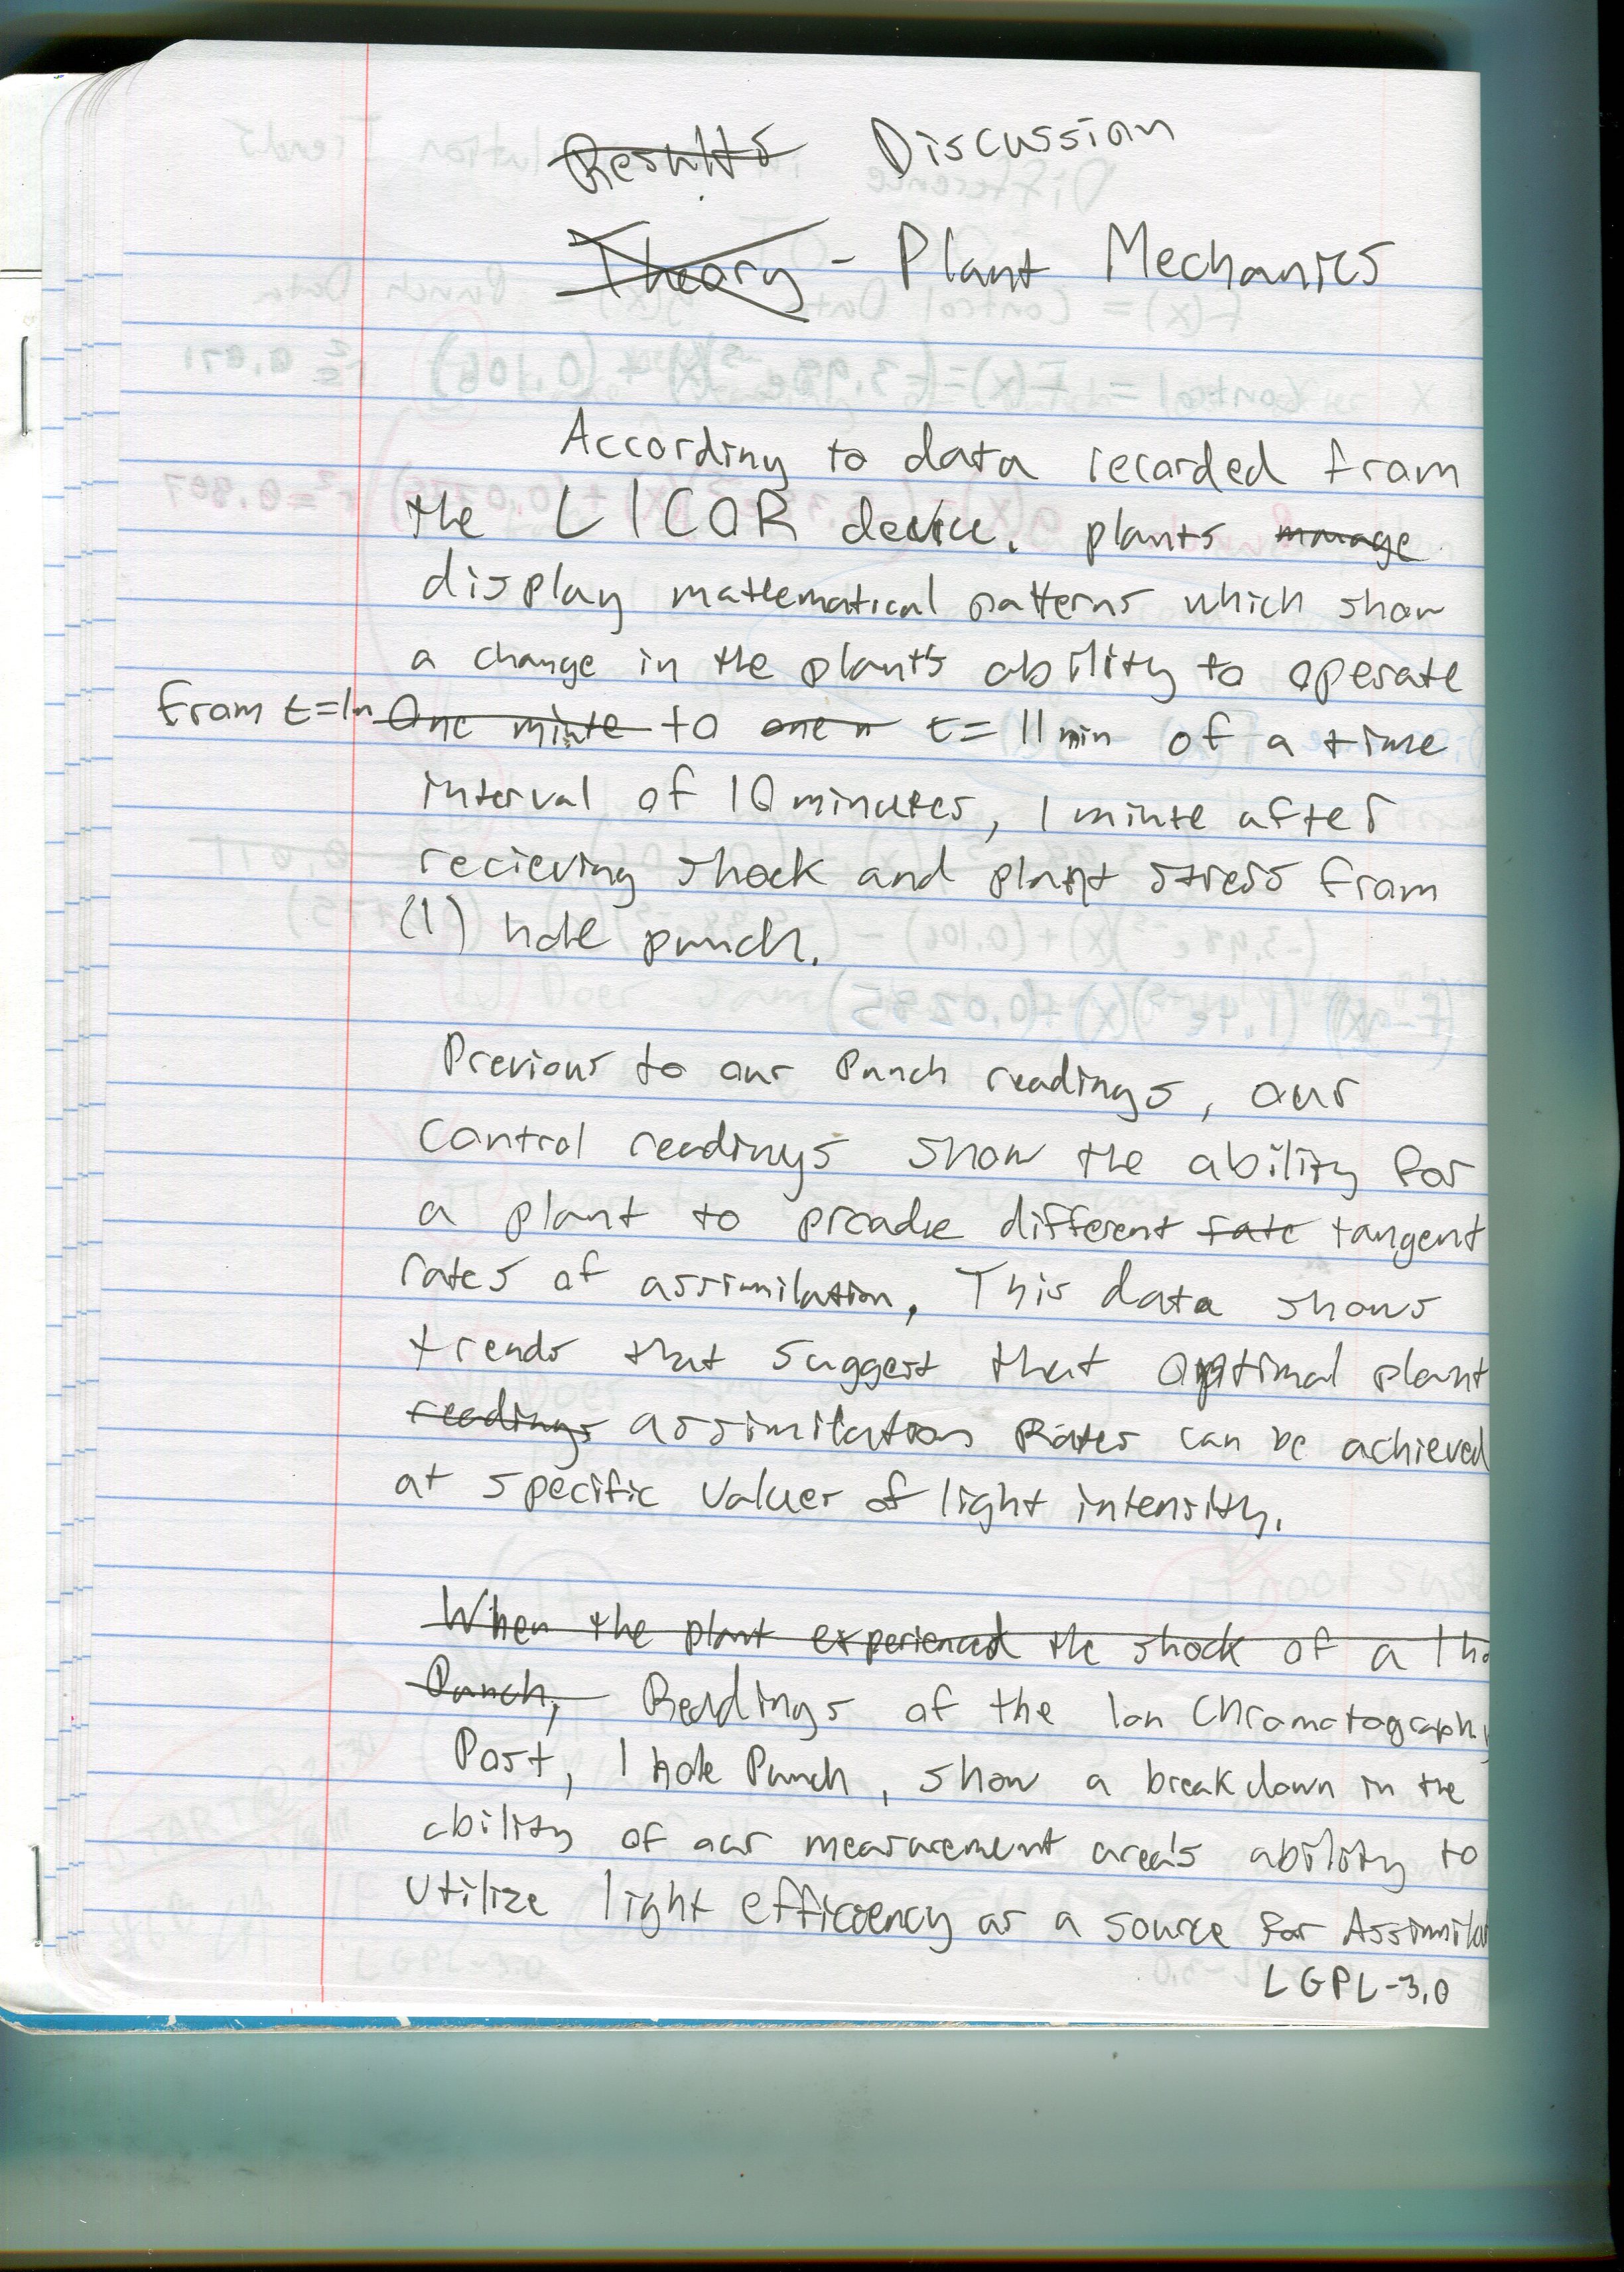 Results Discussion
Theory - Plant Mechanics
According to data recorded from
the LICOR device, plants manage
display mathematical patterns which show
a change in the plant's ability to operate
from t=1m One minute to one n t=11min of a time
interval of 10 minutes, 1 minte after
recieving shock and plant stress from
(1) hole punch.
Previous to our Punch readings, our
Control readings show the ability for
a plant to produce different rate tangent
rates of assimilation. This data shows
trends that suggest that Optimal plant
readings assimilation Rates can be achieved
at specific values of light intensity.
When the plant experienced the shock of a 1 ho
Punch, Readings of the Ion Chromatography
Post, 1 hole Punch, show a breakdown in the
ability of our measurement area's ability to
Utilize light efficiency as a source for Assimila
LGPL-3.0